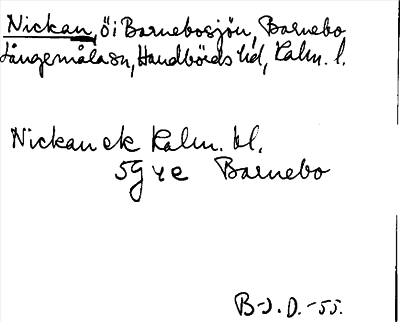 Nickan, ö i Barnebosjön, Barnebo
Långemåla sn, Handbörds hd, Kalm. l.
Nickan ek Kalm. bl.
5g4e Barnebo
B-J. D. -55.